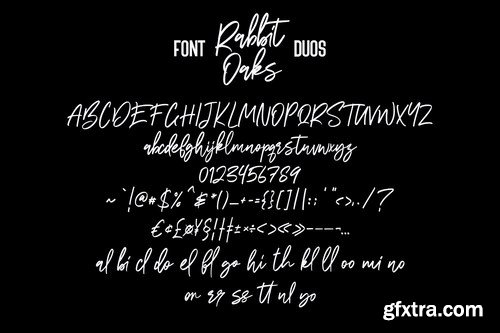 FONT Rabbit DUOS
Oaks
ABCDEFGHIJKLMNOPQRSTUVWXYZ
abcdefghijklmnopqrstuvwxyz
0123456789
~`!@#$%^&*()_+-={}[]|\:;'"<>,./?
€¢£ø¥§¦†‡±×÷<>«»----...
al bi cl do el fl go hi th kl ll oo mi no
on er ss tt ul yo
gfxtra.com